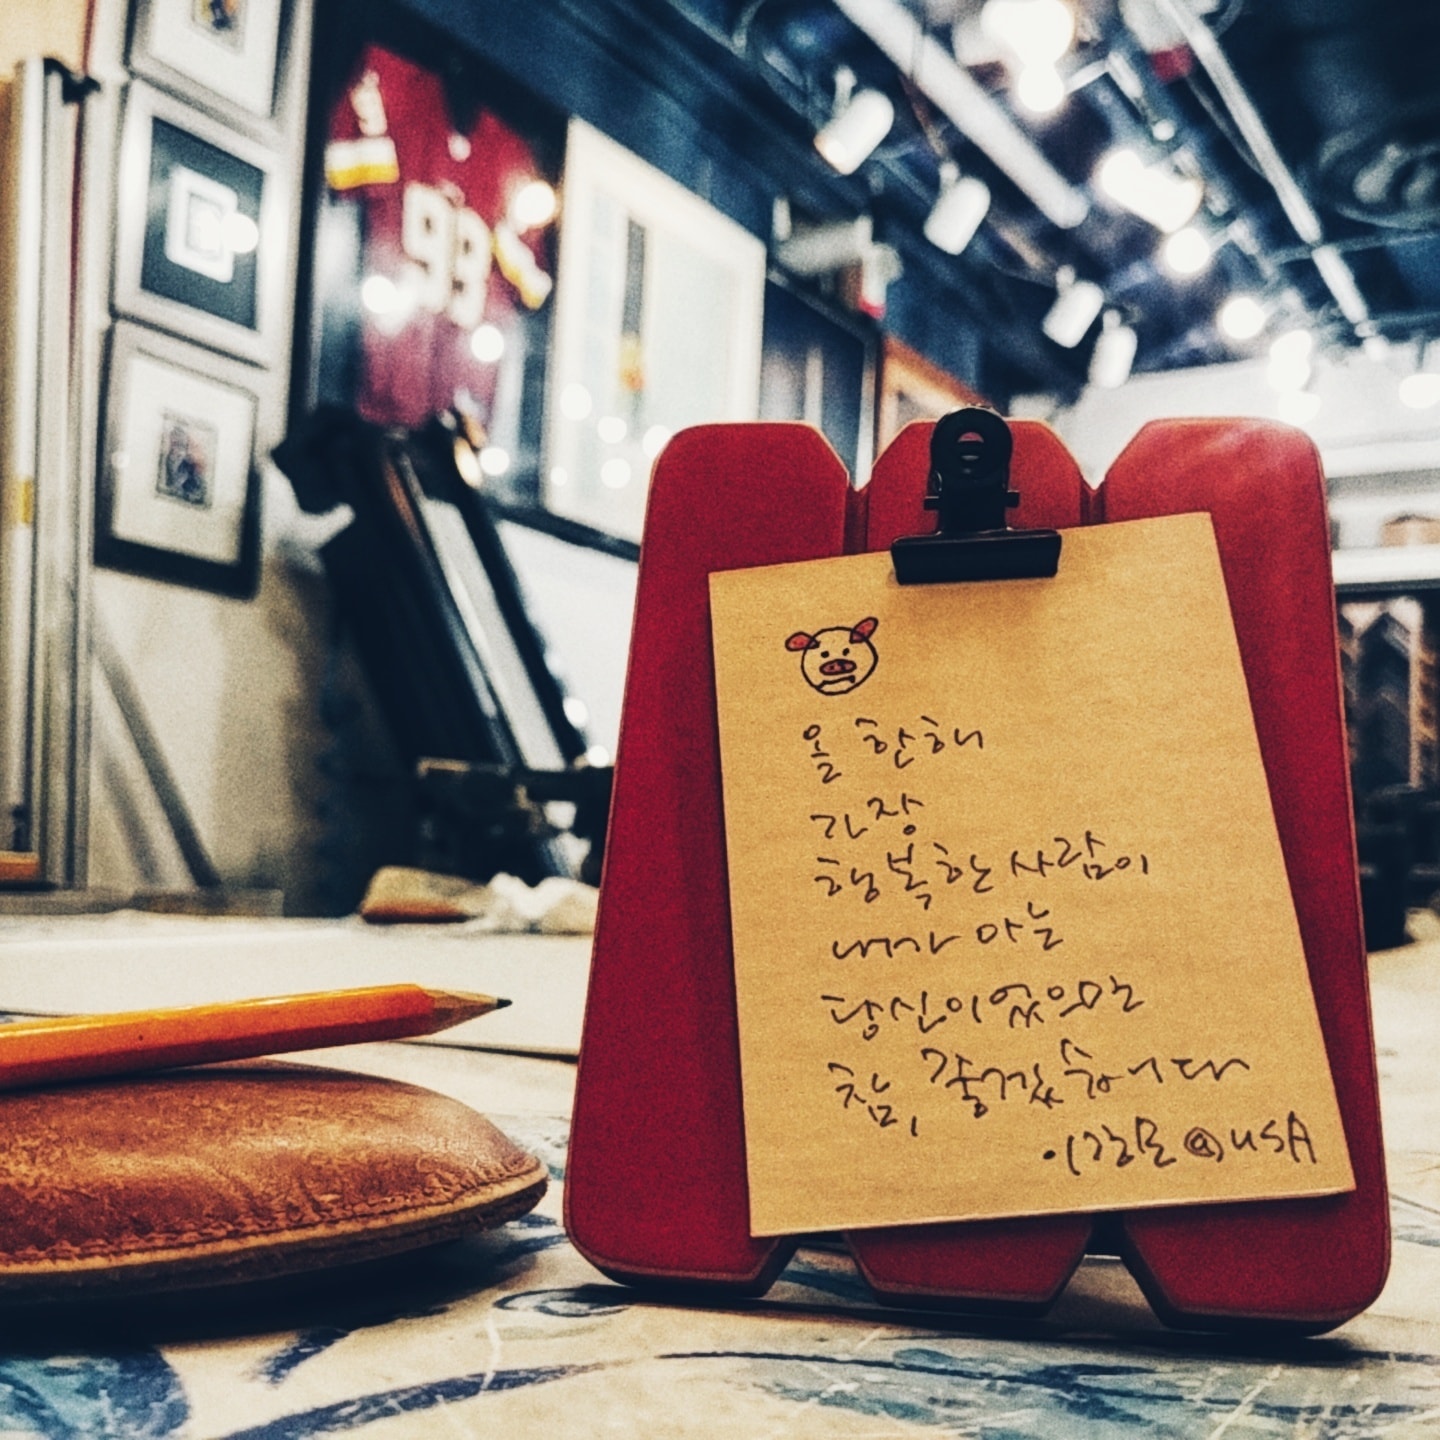 93
올 한해
가장
행복한 사람이
내가 아는
당신이었으면
참, 좋겠습니다
@USA